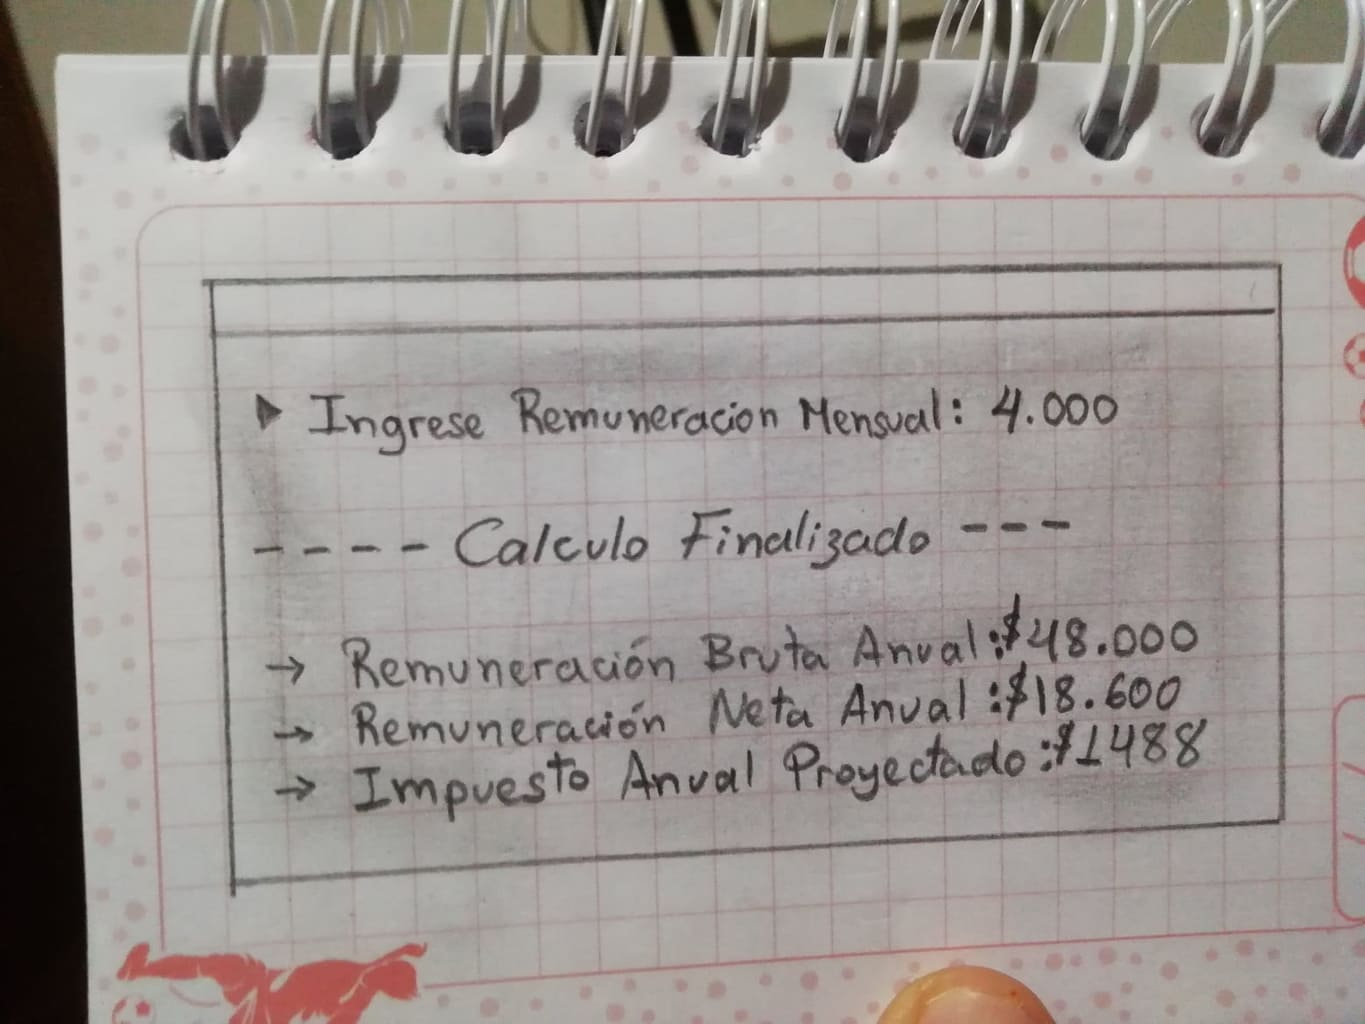 ▶ Ingrese Remuneracion Mensual: 4.000
---- Calculo Finalizado ---
→ Remuneración Bruta Anual:$48.000
→ Remuneración Neta Anual:$18.600
→ Impuesto Anual Proyectado:$1488